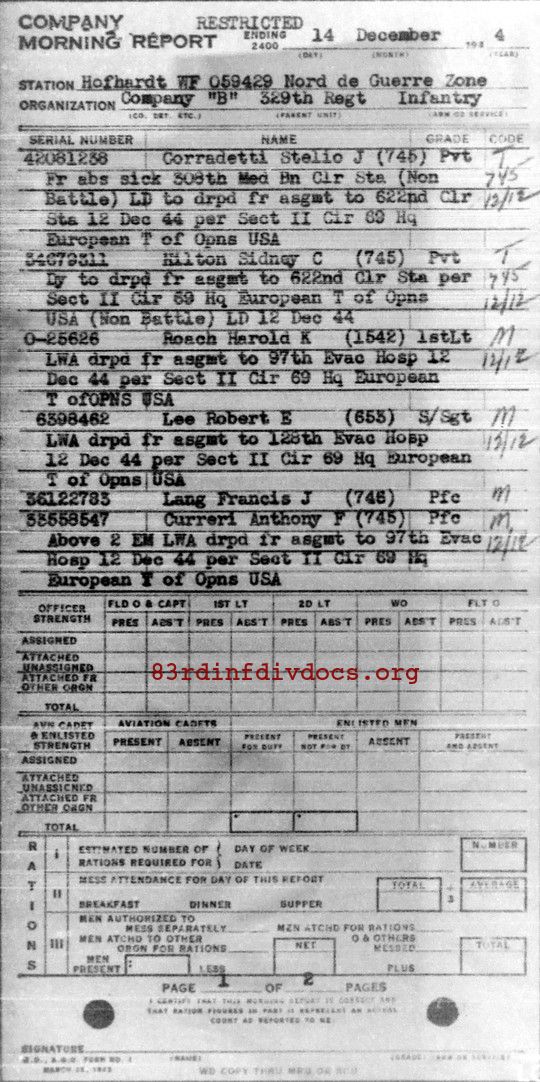 COMPANY
MORNING REPORT
RESTRICTED
ENDING 2400 14 December 194 4
(DAY) (MONTH) (YEAR)
STATION Hofhardt WF 059429 Nord de Guerre Zone
ORGANIZATION Company "B" 329th Regt Infantry
(CO. DET. ETC.) (PARENT UNIT) (ARM OR SERVICE)
SERIAL NUMBER NAME GRADE CODE
42081238 Corradetti Stelio J (745) Pvt T
Fr abs sick 308th Med Bn Clr Sta (Non 745
Battle) LD to drpd fr asgmt to 622nd Clr 12/12
Sta 12 Dec 44 per Sect II Cir 69 Hq
European T of Opns USA
34679311 Hilton Sidney C (745) Pvt T
Dy to drpd fr asgmt to 622nd Clr Sta per 745
Sect II Cir 69 Hq European T of Opns 12/12
USA (Non Battle) LD 12 Dec 44
O-25626 Roach Harold K (1542) 1stLt M
LWA drpd fr asgmt to 97th Evac Hosp 12 12/12
Dec 44 per Sect II Cir 69 Hq European
T ofOPNS USA
6398462 Lee Robert E (653) S/Sgt M
LWA drpd fr asgmt to 128th Evac Hosp 12/12
12 Dec 44 per Sect II Cir 69 Hq European
T of Opns USA
36122783 Lang Francis J (746) Pfc M
33558547 Curreri Anthony F (745) Pfc M
Above 2 EM LWA drpd fr asgmt to 97th Evac 12/12
Hosp 12 Dec 44 per Sect II Cir 69 Hq
European T of Opns USA
OFFICER STRENGTH FLD O & CAPT 1ST LT 2D LT WO FLT O
PRES ABS'T PRES ABS'T PRES ABS'T PRES ABS'T PRES ABS'T
ASSIGNED
ATTACHED UNASSIGNED
ATTACHED FR OTHER ORGN
TOTAL
83rdinfdivdocs.org
AVN CADET & ENLISTED STRENGTH AVIATION CADETS ENLISTED MEN
PRESENT ABSENT PRESENT FOR DUTY PRESENT NOT FOR DY ABSENT PRESENT AND ABSENT
ASSIGNED
ATTACHED UNASSIGNED
ATTACHED FR OTHER ORGN
TOTAL
RATIONS
I ESTIMATED NUMBER OF RATIONS REQUIRED FOR DAY OF WEEK DATE NUMBER
II MESS ATTENDANCE FOR DAY OF THIS REPORT TOTAL ÷ 3 AVERAGE
BREAKFAST DINNER SUPPER
III MEN AUTHORIZED TO MESS SEPARATELY MEN ATCHD FOR RATIONS
MEN ATCHD TO OTHER ORGN FOR RATIONS NET O & OTHERS MESSED TOTAL
MEN PRESENT LESS PLUS
PAGE 1 OF 2 PAGES
I CERTIFY THAT THIS MORNING REPORT IS CORRECT AND
THAT RATION FIGURES IN PART II REPRESENT AN ACTUAL
COUNT AS REPORTED TO ME
SIGNATURE
W.D., A.G.O. FORM NO. 1 (NAME) (GRADE, ARM OR SERVICE)
MARCH 25, 1943
WD COPY THRU MRU OR SCU